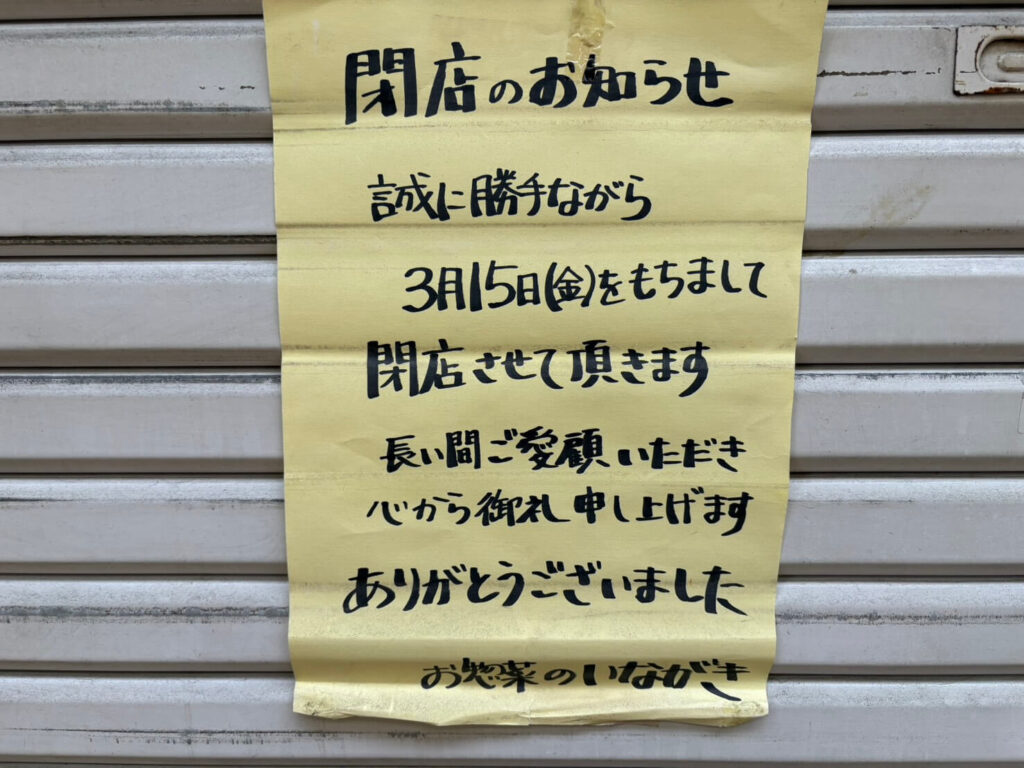 閉店のお知らせ
誠に勝手ながら
3月15日(金)をもちまして
閉店させて頂きます
長い間ご愛顧いただき
心から御礼申し上げます
ありがとうございました
お惣菜のいながき